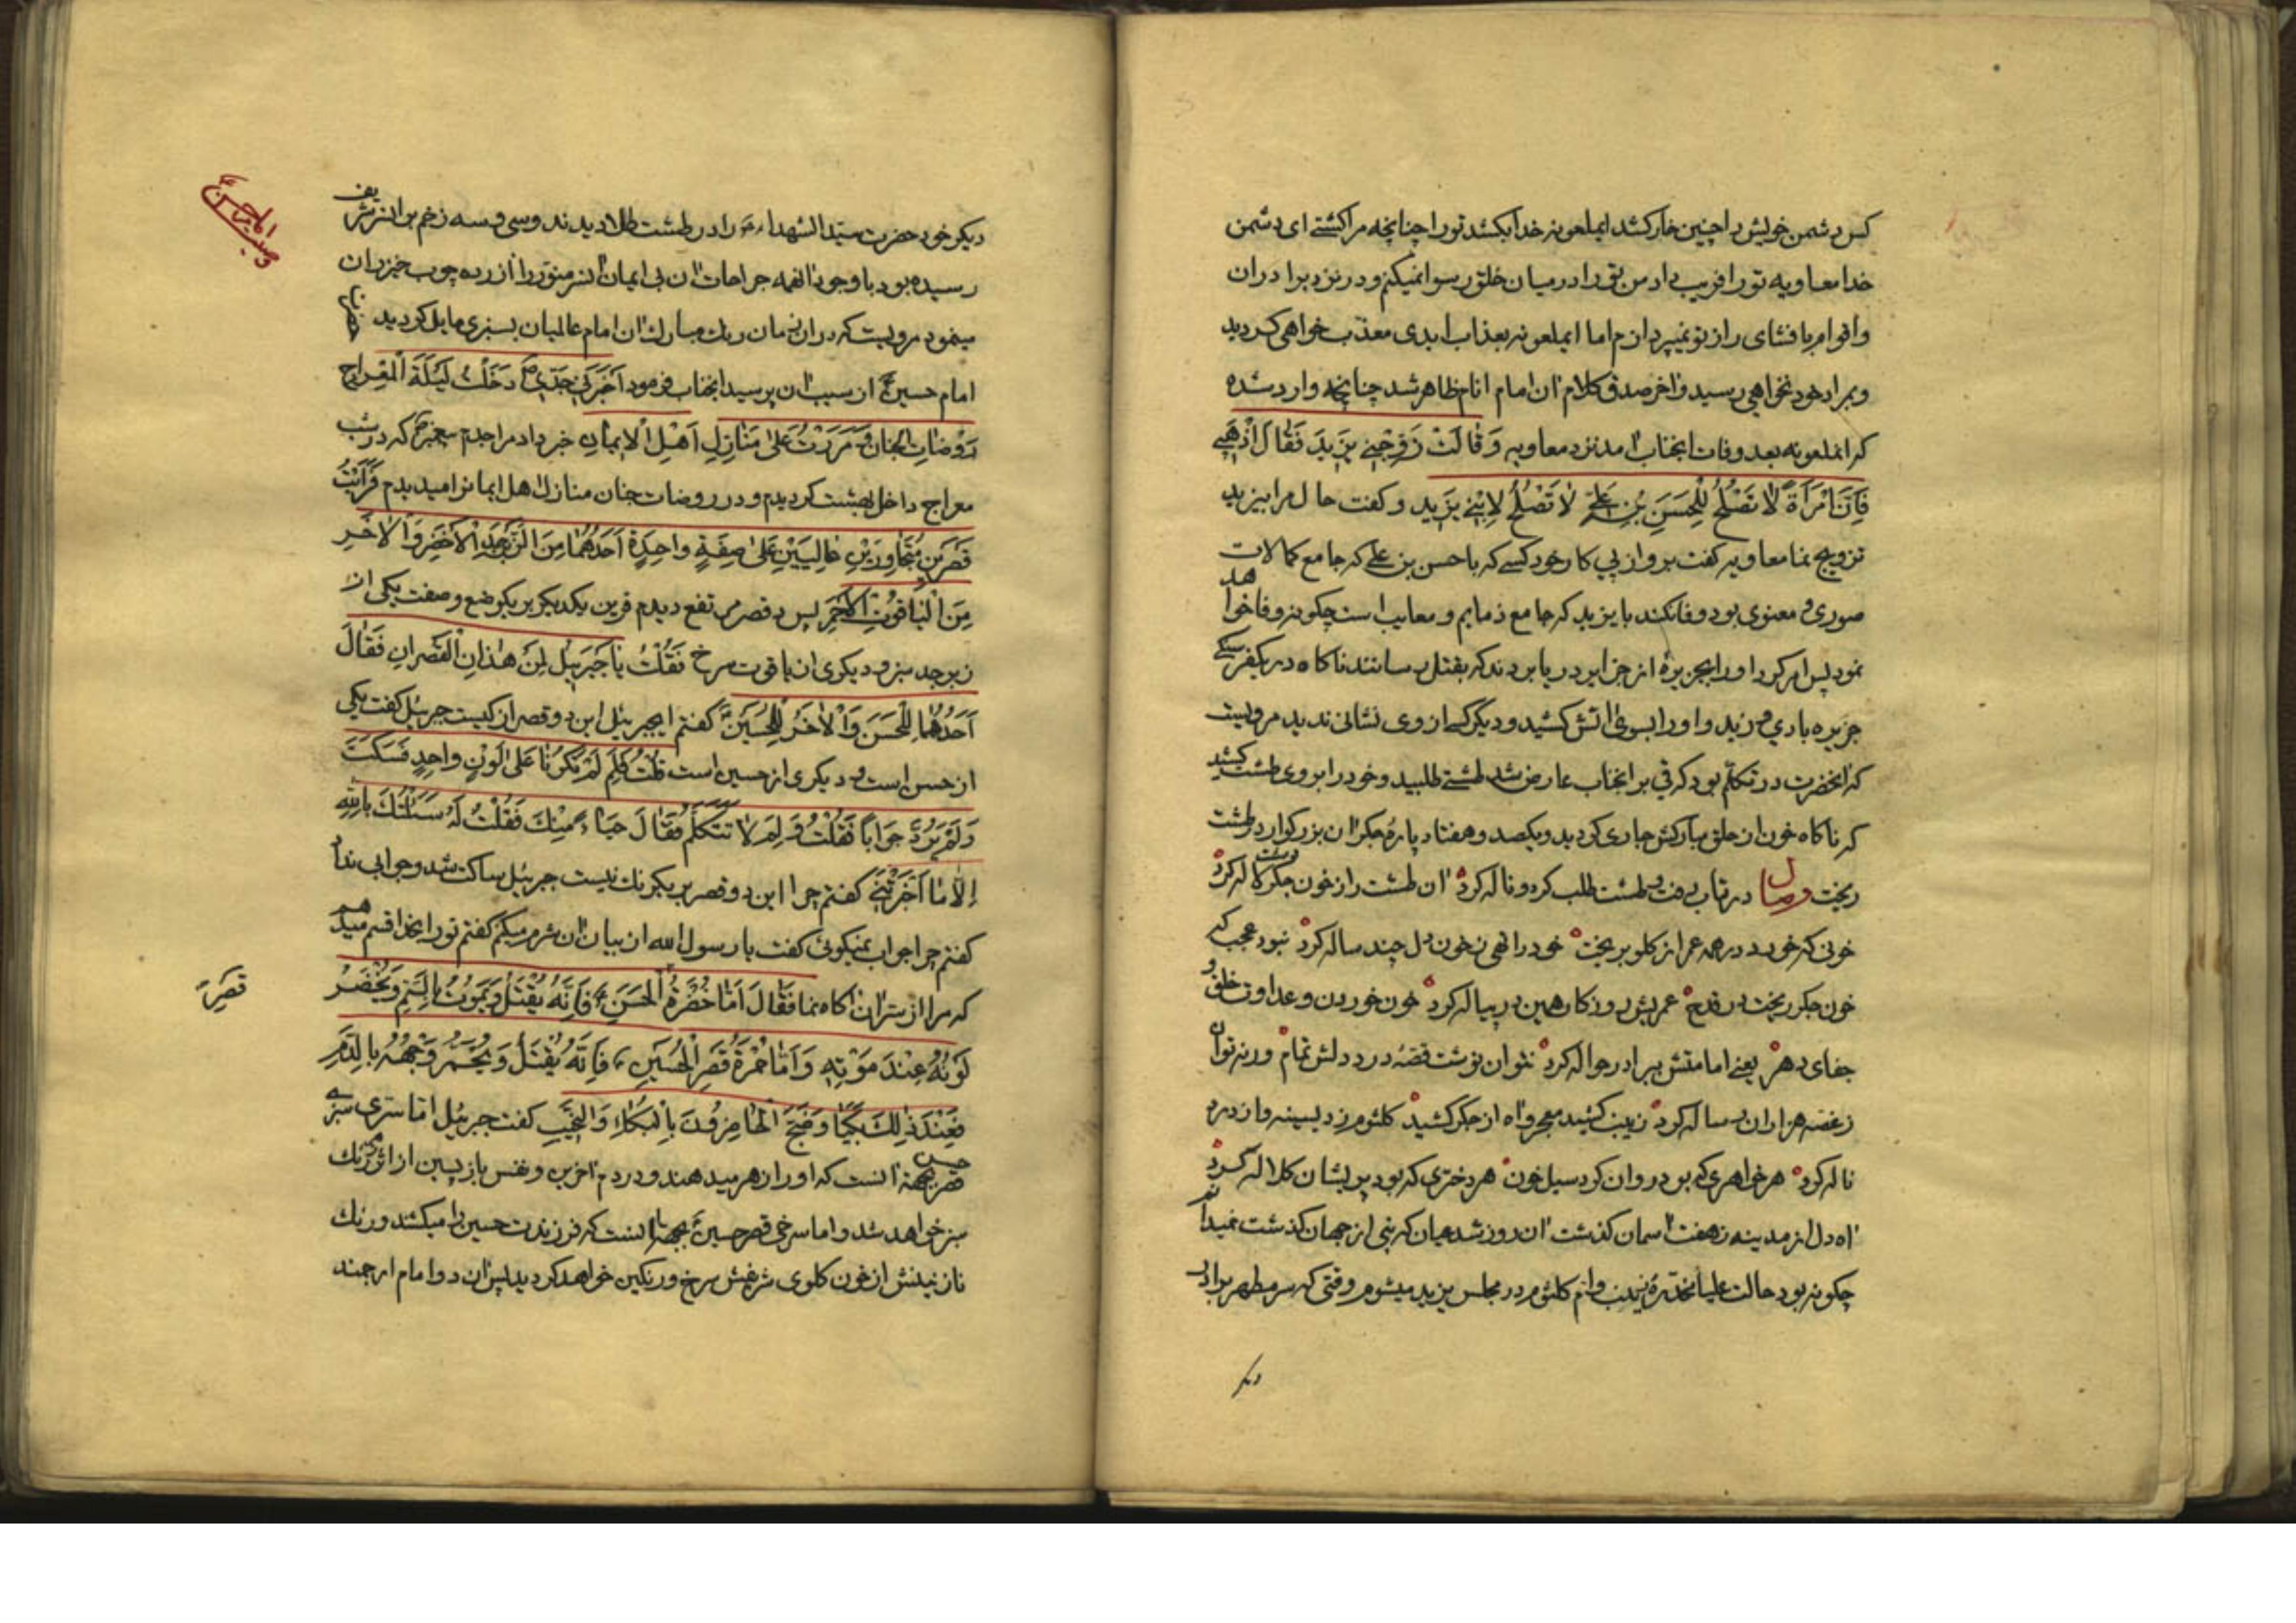 کس دشمن خویش را چنین خار کشد ایملعونه خدا بکشد تو را چنانچه مرا کشتی ای دشمن
خدا معاویه تو را فریب داد من تو را در میان خلق رسوا نمیکنم و در نزد برادران
و اقوام بافشای راز تو نمیپردازم اما ایملعونه بعذاب ابدی معذب خواهی کردید
و بمراد خود نخواهی رسید و اخر صدق کلام ان امام انام ظاهر شد چنانچه وارد شده
که انملعونه بعد وفات انجناب امد نزد معاویه وَ قالَتْ زَوِّجْنِی یَزیدَ فَقالَ اذْهَبِی
فَاِنَّ امْرَأَةً لا تَصْلَحُ لِلْحَسَنِ بْنِ عَلِیٍّ لا تَصْلَحُ لِابْنِی یَزیدَ و کفت حال مرا بیزید
تزویج نما معاویه کفت برو از پی کار خود کسی که با حسن بن علی که جامع کمالات
صوری و معنوی بود وفا نکند با یزید که جامع ذمایم و معایب است چکونه وفا خواهد
نمود پس امر کرد او را بجزیرهٔ از جزایر دریا بردند که بقتل رسانند ناکاه در یکفرسنکی
جزیره بادی وزید و او را بسوی اتش کشید و دیگر کسی از وی نشانی ندید مرویست
که انحضرت در تکلم بود که قی بر انجناب عارض شد طشتی طلبید و خود را بروی طشت کشید
که ناکاه خون از حلق مبارکش جاری کردید و یکصد و هفتاد پارهٔ جکر ان بزرکوار در طشت
ریخت وصال در تاب رفت و طشت طلب کرد و ناله کرد ان طشت را ز خون جکر دشت لاله کرد
خونی که خورد در همه عمر از کلو بریخت خود را تهی ز خون دل چند ساله کرد نبود عجب که
خون جکر ریخت در قدح عمریش روزکار همین در پیاله کرد خون خوردن و عداوت خلق و
جفای دهر یعنی امامتش ببرادر حواله کرد نتوان نوشت قصهٔ درد دلش تمام ورنه توان
ز غصه هزاران رساله کرد زینب کشید معجر و اه از جکر کشید کلثوم زد بسینه و از درد
ناله کرد هر خواهری که بود روان کرد سیل خون هر دختری که بود پریشان کلاله کرد
اه دل از مدینه ز هفت اسمان کذشت ان روز شد عیان که نبی از جهان کذشت نمیدانم
چکونه بود حالت علیا مخدرهٔ زینب و ام کلثوم در مجلس یزید میشوم وقتی که سر مطهر برادر
دیکر
دیکر خود حضرت سید الشهداء را در طشت طلا دیدند و سی و سه زخم بر ان سر شریف
رسیده بود با وجود انهمه جراحات ان بی ایمان ان سر منور را ازرده چوب خیزران
مینمود مرویست که در ان زمان رنك مبارك ان امام عالمیان بسبزی مایل کردید
امام حسین از سبب ان پرسید انجناب فرمود اَخْبَرَنِی جَدّی دَخَلْتُ لَیْلَةَ الْمِعْراجِ
رَوْضاتِ الْجِنانِ وَ مَرَرْتُ عَلی مَنازِلِ اَهْلِ الْایمانِ خبر داد مرا جدم پیغمبر که در شب
معراج داخل بهشت کردیدم و در روضات جنان منازل اهل ایمانرا میدیدم فَرَاَیْتُ
قَصْرَیْنِ مُتَجاوِرَیْنِ عالِیَیْنِ عَلی صِفَةٍ واحِدَةٍ اَحَدُهُما مِنَ الزَّبَرْجَدِ الْاَخْضَرِ وَ الْاخَرِ
مِنَ الْیاقُوتِ الْاَحْمَرِ پس دو قصر مرتفع دیدم قرین یکدیکر بر یکوضع و صفت یکی از
زبرجد سبز و دیکری از یاقوت سرخ فَقُلْتُ یا جَبْرَئیلُ لِمَنْ هذانِ الْقَصْرانِ فَقالَ
اَحَدُهُما لِلْحَسَنِ وَ الْاخَرُ لِلْحُسَیْنِ کفتم ایجبرئیل این دو قصر از کیست جبرئیل کفت یکی
از حسن است و دیکری از حسین است قُلْتُ فَلِمَ لَمْ یَکُونا عَلی لَوْنٍ واحِدٍ فَسَکَتَ
وَ لَمْ یَرُدَّ جَواباً فَقُلْتُ وَ لِمَ لا تَتَکَلَّمُ فَقالَ حَیاءً مِنْكَ فَقُلْتُ لَهُ سَئَلْتُكَ بِاللهِ
اِلّا ما اَخْبَرْتَنِی کفتم چرا این دو قصر بر یکرنك نیست جبرئیل ساکت شد و جوابی نداد
کفتم چرا جواب نمیکوئی کفت یا رسول الله از بیان ان شرم میکنم کفتم تو را بخدا قسم میدهم
که مرا از سر ان اکاه نما فَقالَ اَمّا خُضْرَةُ قَصْرِ الْحَسَنِ فَاِنَّهُ یُقْتَلُ وَ یَمُوتُ بِالسَّمِّ وَ یَخْضَرُّ
لَوْنُهُ عِنْدَ مَوْتِهِ وَ اَمّا حُمْرَةُ قَصْرِ الْحُسَیْنِ فَاِنَّهُ یُقْتَلُ وَ یَحْمَرُّ وَجْهُهُ بِالدَّمِ
فَعِنْدَ ذلِكَ بَکَیا وَ ضَجَّ الْحاضِرُونَ بِالْبُکاءِ وَ النَّحیبِ کفت جبرئیل اما سر سبزی
قصر حسن بجهة انست که او را زهر میدهند و در دم اخرین و نفس بازپسین از اثر زهر رنك
سبز خواهد شد و اما سرخی قصر حسین بجهة انست که فرزندت حسین را میکشند و رنك
نازنینش از خون کلوی شریفش سرخ و رنکین خواهد کردید پس ان دو امام ارجمند